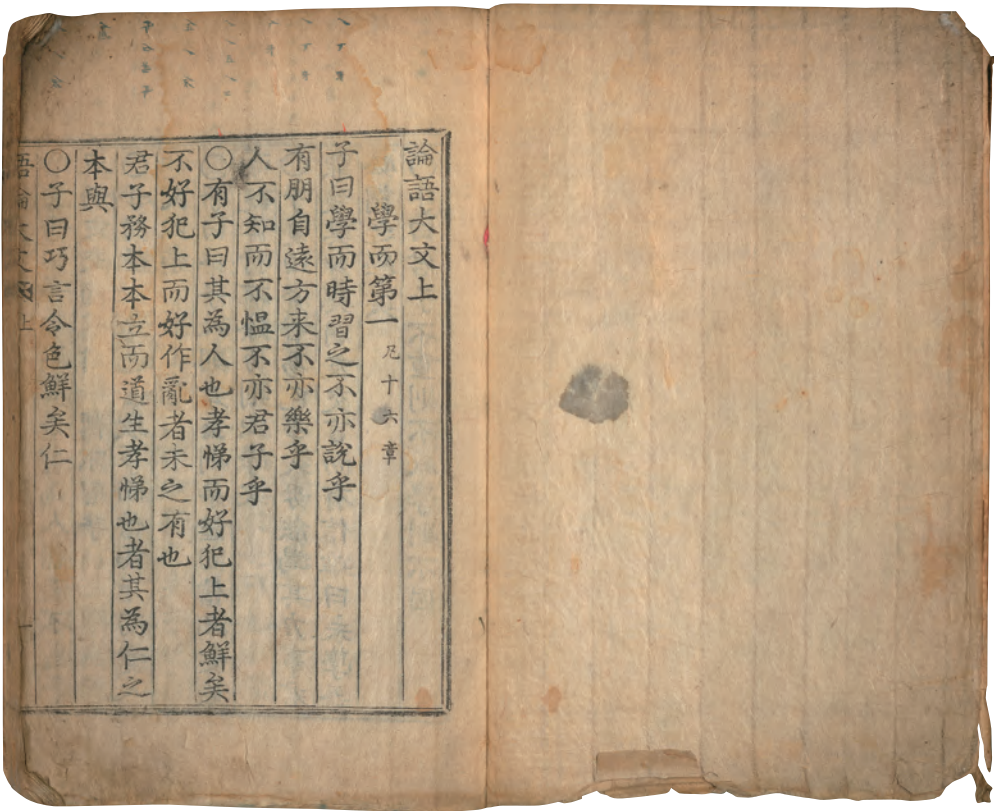 論語大文上
學而第一 凡十六章
子曰學而時習之不亦說乎
有朋自遠方来不亦樂乎
人不知而不愠不亦君子乎
〇有子曰其為人也孝悌而好犯上者鮮矣
不好犯上而好作亂者未之有也
君子務本本立而道生孝悌也者其為仁之
本與
〇子曰巧言令色鮮矣仁